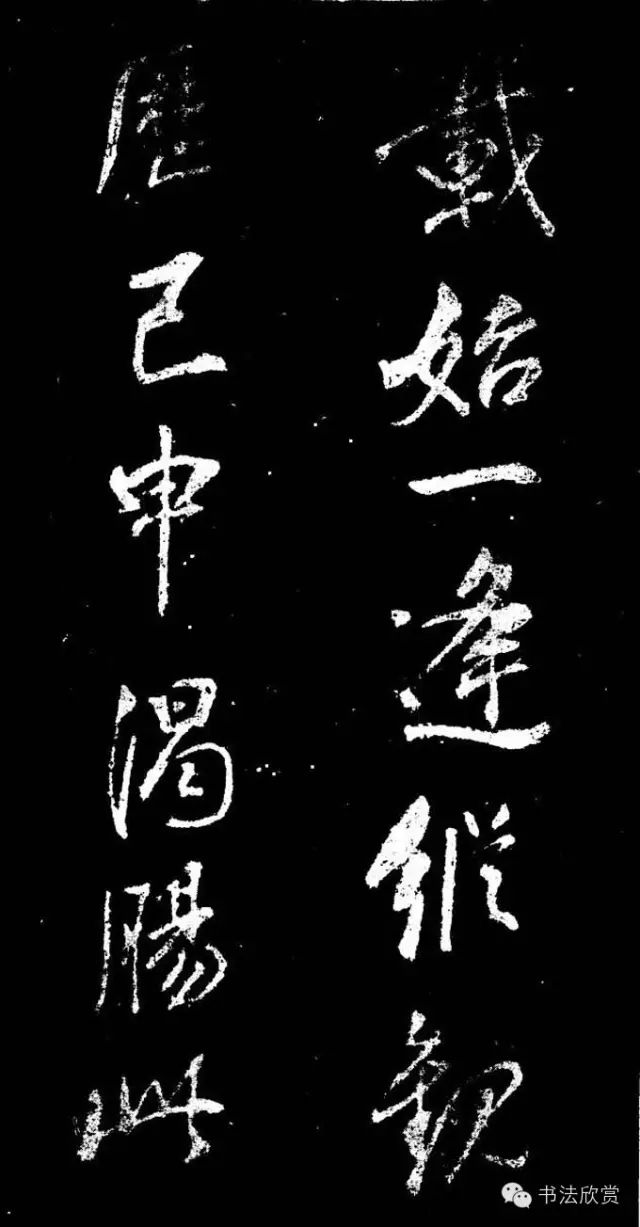 載始一逢縱觀
已申渴腸此
书法欣赏